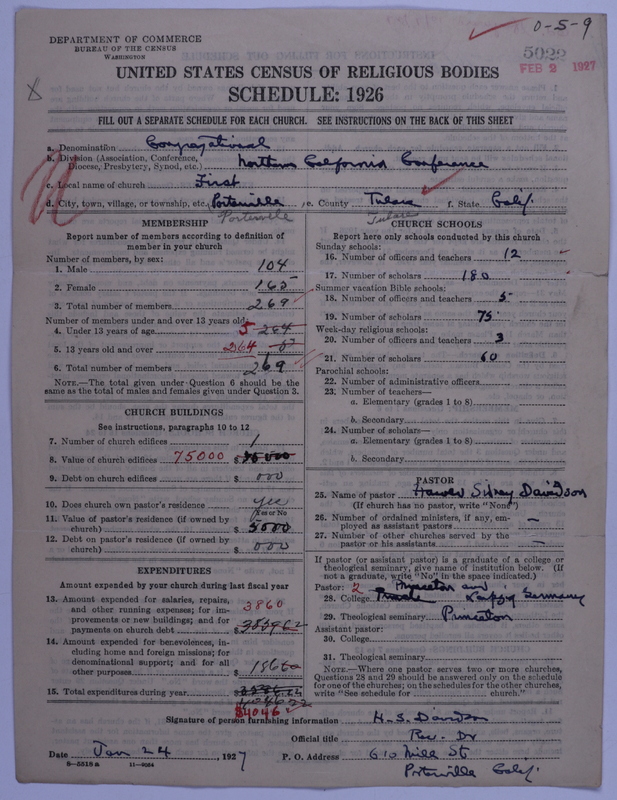 0-5-9
5022
FEB 2 1927
DEPARTMENT OF COMMERCE
BUREAU OF THE CENSUS
WASHINGTON
UNITED STATES CENSUS OF RELIGIOUS BODIES
SCHEDULE: 1926
FILL OUT A SEPARATE SCHEDULE FOR EACH CHURCH. SEE INSTRUCTIONS ON THE BACK OF THIS SHEET
a. Denomination Congregational
b. Division (Association, Conference, Diocese, Presbytery, Synod, etc.) Northern California Conference
c. Local name of church First
d. City, town, village, or township, etc. Porterville e. County Tulare f. State Calif.
Porterville Tulare
MEMBERSHIP
Report number of members according to definition of
member in your church
Number of members, by sex:
1. Male 104
2. Female 165
3. Total number of members 269
Number of members under and over 13 years old:
4. Under 13 years of age 5 264
5. 13 years old and over 264
6. Total number of members 269
NOTE.—The total given under Question 6 should be the
same as the total of males and females given under Question 3.
CHURCH BUILDINGS
See instructions, paragraphs 10 to 12
7. Number of church edifices 1
8. Value of church edifices 75000 $
9. Debt on church edifices $ 000
10. Does church own pastor's residence yes
Yes or No
11. Value of pastor's residence (if owned by
church) $ 5000
12. Debt on pastor's residence (if owned by
church) $ 000
EXPENDITURES
Amount expended by your church during last fiscal year
13. Amount expended for salaries, repairs,
and other running expenses; for im-
provements or new buildings; and for
payments on church debt $
14. Amount expended for benevolences, in-
cluding home and foreign missions; for
denominational support; and for all
other purposes $
15. Total expenditures during year $
CHURCH SCHOOLS
Report here only schools conducted by this church
Sunday schools:
16. Number of officers and teachers 12
17. Number of scholars 180
Summer vacation Bible schools:
18. Number of officers and teachers 5
19. Number of scholars 75
Week-day religious schools:
20. Number of officers and teachers 3
21. Number of scholars 60
Parochial schools:
22. Number of administrative officers
23. Number of teachers—
a. Elementary (grades 1 to 8)
b. Secondary
24. Number of scholars—
a. Elementary (grades 1 to 8)
b. Secondary
PASTOR
25. Name of pastor Harold Sidney Davidson
(If church has no pastor, write "None")
26. Number of ordained ministers, if any, em-
ployed as assistant pastors —
27. Number of other churches served by the
pastor or his assistants —
If pastor (or assistant pastor) is a graduate of a college or
theological seminary, give name of institution below. (If
not a graduate, write "No" in the space indicated.)
Pastor: 2 Princeton and
28. College Leipzig Germany
29. Theological seminary Princeton
Assistant pastor:
30. College
31. Theological seminary
NOTE.—Where one pastor serves two or more churches,
Questions 28 and 29 should be answered only on the schedule
for one of the churches; on the schedules for the other churches,
write "See schedule for church."
Signature of person furnishing information H. S. Davidson
Official title Rev. Dr
Date Jan 24, 1927 P. O. Address 610 Mill St
Porterville Calif.
8—5518a 11—9064